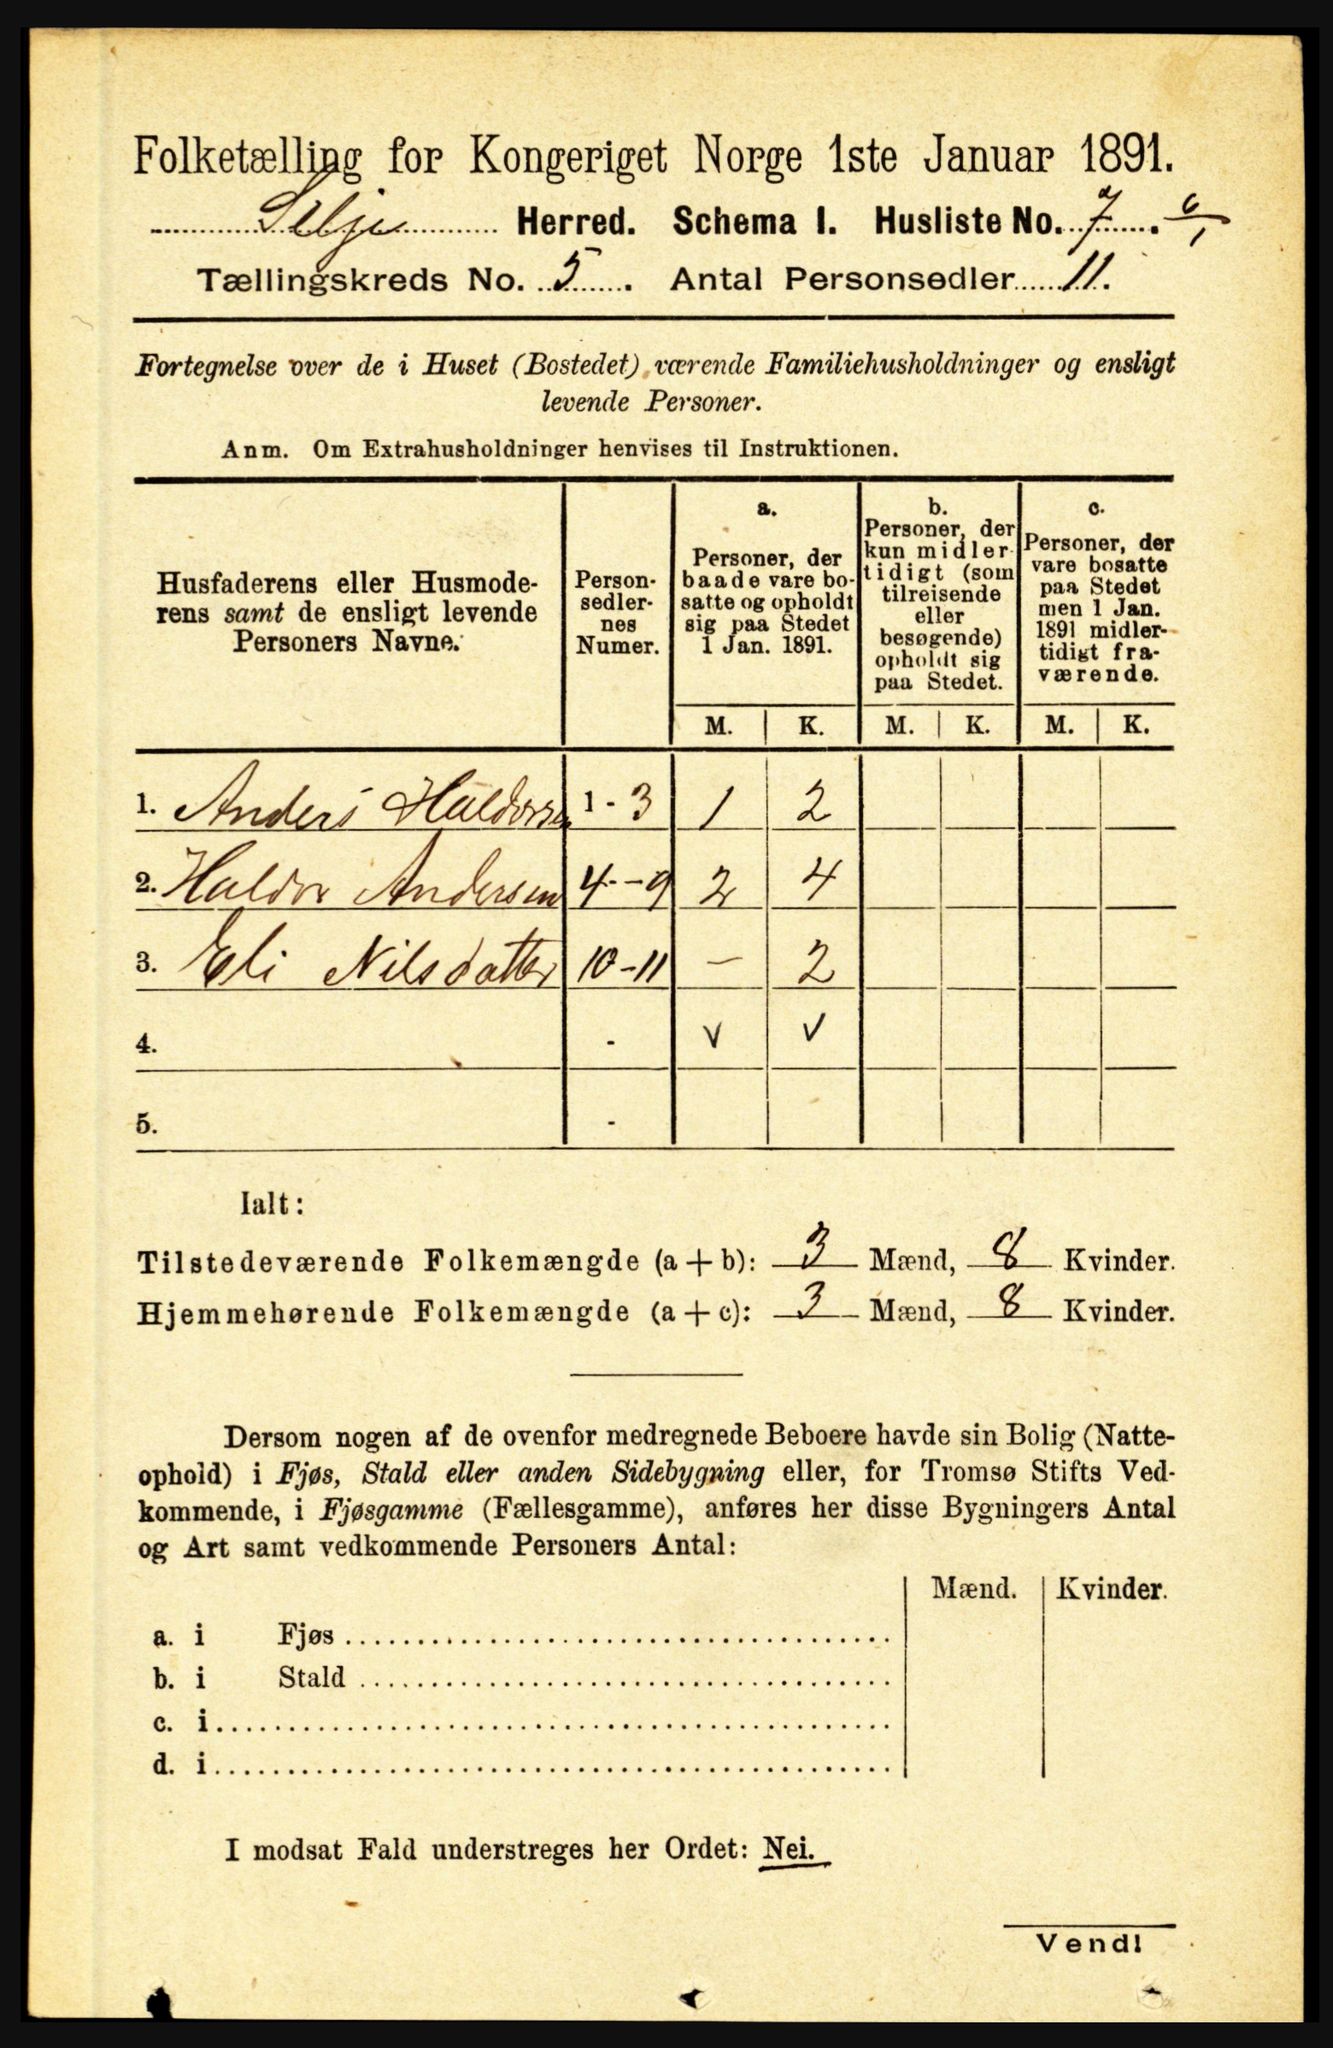 Folketælling for Kongeriget Norge 1ste Januar 1891.
Selje Herred. Schema I. Husliste No. 7.
Tællingskreds No. 5. Antal Personsedler 11.
Fortegnelse over de i Huset (Bostedet) værende Familiehusholdninger og ensligt
levende Personer.
Anm. Om Extrahusholdninger henvises til Instruktionen.
Husfaderens eller Husmode-
rens samt de ensligt levende
Personers Navne.
Person-
sedler-
nes
Numer.
a.
Personer, der
baade vare bo-
satte og opholdt
sig paa Stedet
1 Jan. 1891.
b.
Personer, der
kun midler-
tidigt (som
tilreisende
eller
besøgende)
opholdt sig
paa Stedet.
c.
Personer, der
vare bosatte
paa Stedet
men 1 Jan.
1891 midler-
tidigt fra-
værende.
M. K. M. K. M. K.
1. Anders Haldorsen 1 - 3 1 2
2. Haldor Andersen 4 - 9 2 4
3. Eli Nilsdatter 10 - 11 - 2
4. - v v
5. -
Ialt:
Tilstedeværende Folkemængde (a + b): 3 Mænd, 8 Kvinder.
Hjemmehørende Folkemængde (a + c): 3 Mænd, 8 Kvinder.
Dersom nogen af de ovenfor medregnede Beboere havde sin Bolig (Natte-
ophold) i Fjøs, Stald eller anden Sidebygning eller, for Tromsø Stifts Ved-
kommende, i Fjøsgamme (Fællesgamme), anføres her disse Bygningers Antal
og Art samt vedkommende Personers Antal:
Mænd. Kvinder.
a. i Fjøs
b. i Stald
c. i
d. i
I modsat Fald understreges her Ordet: Nei.
Vend!